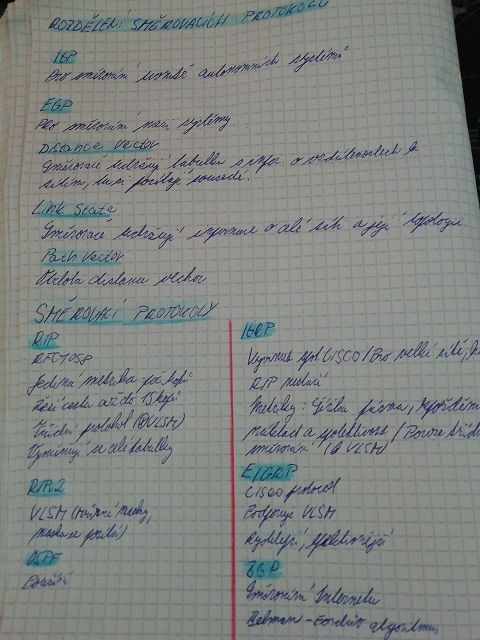 ROZDĚLENÍ SMĚROVACÍCH PROTOKOLŮ
IGP
Pro směrování uvnitř autonomních systémů
EGP
Pro směrování mezi systémy
Distance Vector
Směrovače udržují tabulku s infor. o vzdálenostech k
sítím, kterou posílají sousedé.
Link State
Směrovače udržují informace o celé síti a její topologii
Path Vector
Obdoba distance vector
SMĚROVACÍ PROTOKOLY
RIP
RFC1058
Jediná metrika počet hopů
cesta až do 15 hopů
Třídní protokol (VLSM)
Vyměňují se celé tabulky
RIPv2
VLSM (
maska se posílá)
OSPF
IGRP
Vyvinut spol. CISCO / Pro velké sítě,
RIP nestačí
Metriky: Šířka pásma, zpoždění
náklad a spolehlivost / Pouze
směrování (VLSM)
EIGRP
Cisco protocol
Podporuje VLSM
Rychlejší, efektivnější
BGP
Směrování Internetu
Belman-Fordův algoritmus